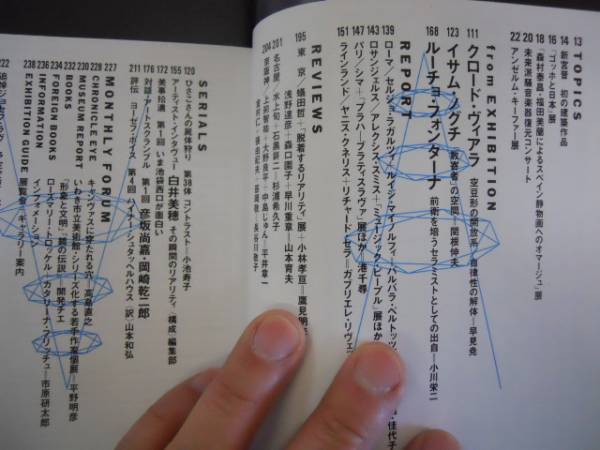 TOPICS
13
14 新宮晋 初の建築作品
16 「ゴッホと日本」展
18 「森村泰昌・福田美蘭によるスペイン静物画へのオマージュ」展
20 未来派騒音楽器復元コンサート
22 アンゼルム・キーファー展
from EXHIBITION
111 クロード・ヴィアラ 空豆形の開放系/自律性の解体—早見堯
123 イサム・ノグチ 「教室者」の空間—関根伸夫
168 ルーチョ・フォンターナ 前衛を培うセラミストとしての出自—小川栄二
REPORT
139 ローマ/セルジョ・ラガルツィ/ルイジ・マイノルフィ/バルバラ・ベルトッツィ
149 ロサンジェルス/アレクシス・スミス+「ミュージック・ピープル」展ほか
147 パリ/シマ+「プラハ=ブラティスラヴァ」展ほか—港千尋
151 ラインランド/ヤニス・クネリス・リチャード・セラ・ガブリエレ・リヴェ
・佳代子
REVIEWS
195 東京/蟻田哲+「脱着するリアリティ」展+小林孝亘—鷹見明
浅野達彦+森口園子+早川重章—山本育夫
201 名古屋/水上旬+石黒鏘二—杉浦希久子
204 京阪神/上前智祐+大野良平+中島じゅん—平井章一
SERIALS
120 ひさこさんの屍体狩り 第38体 コントラスト—小池寿子
155 アーティスト・インタヴュー 白井美穂 その瞬間のリアリティ 構成 編集部
172 美事拾遺 第1回 いま池袋西口が面白い
176 対話・アートスクランブル 第1回 彦坂尚嘉・岡﨑乾二郎
211 評伝 ヨーゼフ・ボイス 第4回 ハイナー・シュタッヘルハウス 訳 山本和弘
MONTHLY FORUM
227 CHRONICLE EYE キャンヴァスに穿たれる穴 高島直之
230 MUSEUM REPORT いわき市立美術館・シリーズ化する若手作家個展—平野明彦
232 BOOKS 『形象と文明』『鏡の伝説』—開発チエ
234 FOREIGN BOOKS ローズマリー・トロッケル/カタリーナ・フリッチュ—市原研太郎
236 INFORMATION インフォメーション
238 EXHIBITION GUIDE 展覧会・ギャラリー案内
222